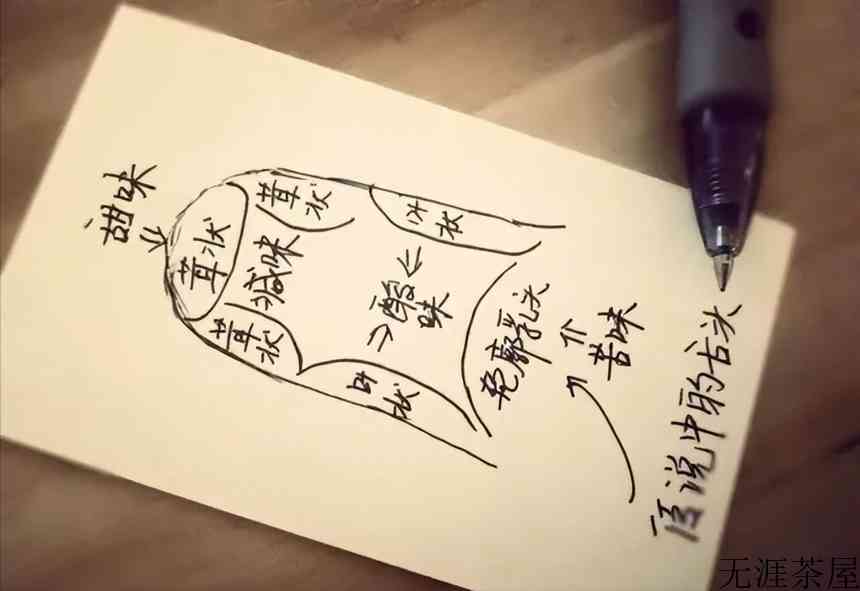 甜味
茸状
茸状
叶状
咸味
酸味
茸状
叶状
轮廓乳头
苦味
传说中的舌头
无涯茶屋